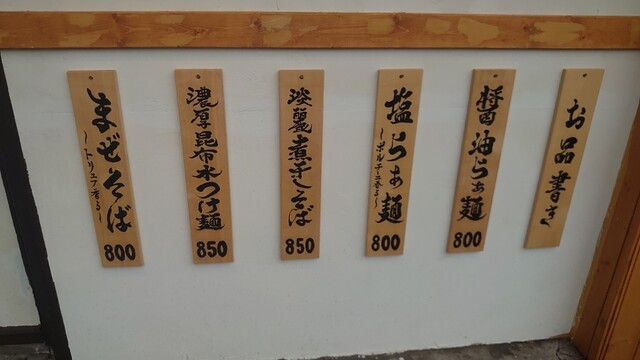 お品書き
醤油らぁ麺
800
塩らぁ麺
~ポルチーニ香る~
800
淡麗煮干しそば
850
濃厚昆布水つけ麺
850
まぜそば
~トリュフ香る~
800